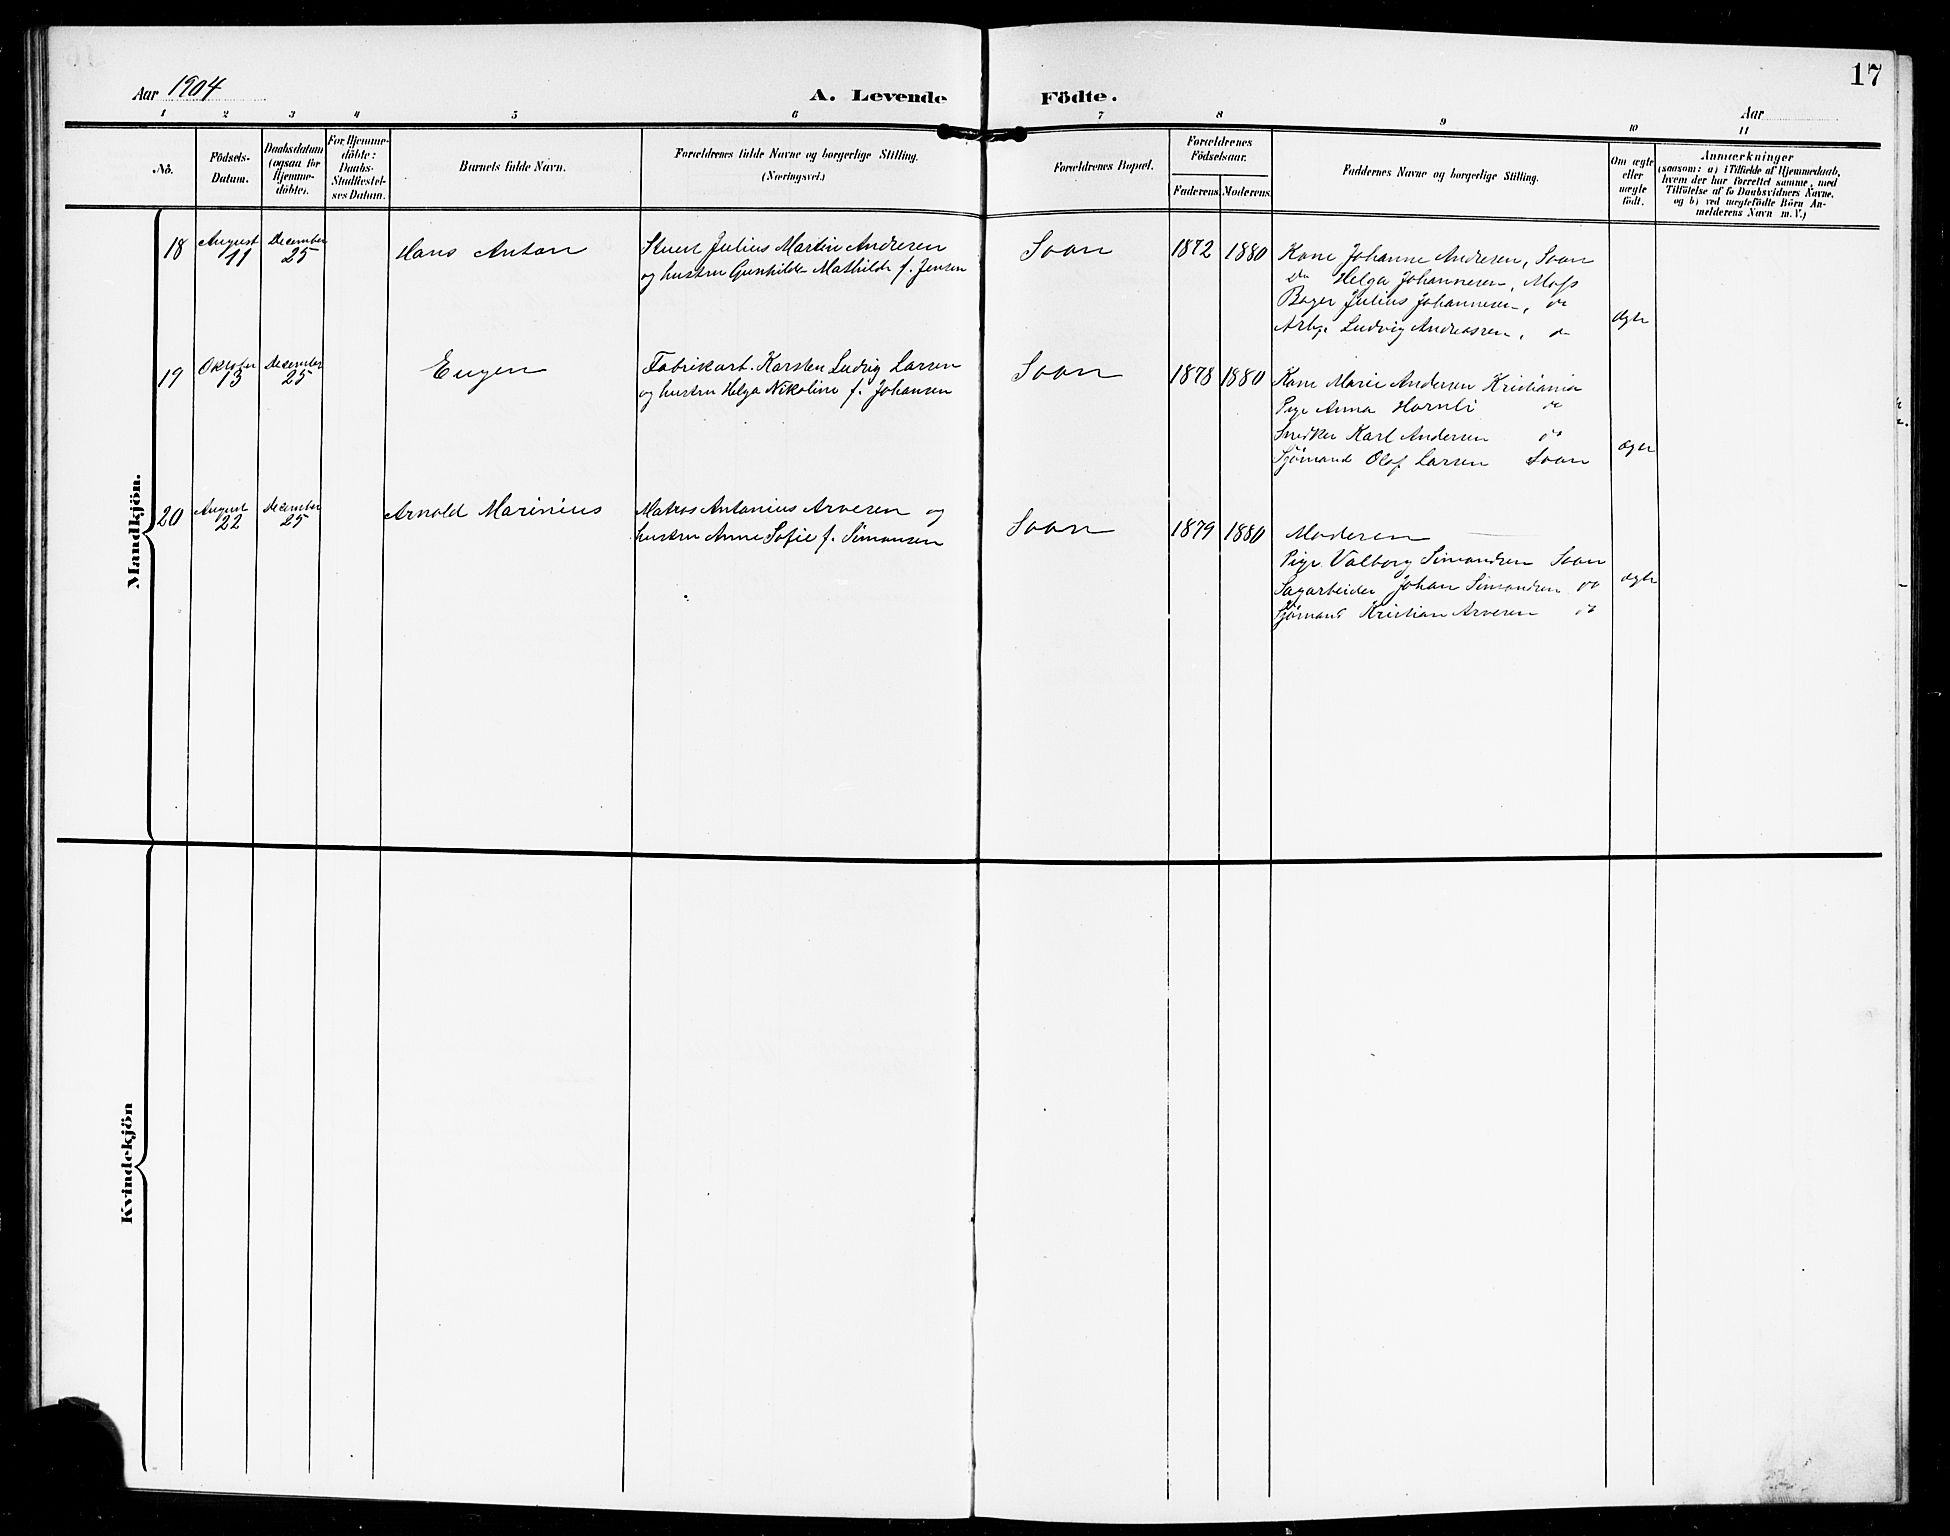 17
Aar 1904
A. Levende Födte.
Aar
1 2 3 4 5 6 7 8 9 10 11
No.
Födsels-
Datum.
Daabsdatum
(ogsaa for
Hjemme-
döbte).
For Hjemme-
döbte:
Daabs-
Stadfestel-
ses Datum.
Barnets fulde Navn.
Forældrenes fulde Navne og borgerlige Stilling.
(Næringsvei.)
Forældrenes Bopæl.
Forældrenes
Födselsaar.
Faderens. Moderens.
Faddernes Navne og borgerlige Stilling.
Om ægte
eller
uægte
født.
Anmærkninger
(saasom: a) i Tilfælde af Hjemmedaab,
hvem der har forrettet samme, med
Tilföielse af to Daabsvidners Navne,
og b) ved uægtefödte Börn An-
melderens Navn m. V.)
Mandkjön.
18
August
11
December
25
Hans Anton
Stuert Julius Martin Andresen
og hustru Gunhilde Mathilde f. Jensen
Soon
1872 1880
Kone Johanne Andresen, Soon
Do Helga Johannesen, Moss
Bager Julius Johannesen, do
Arb. Ludvig Andreassen, do
ægte
19
Oktober
13
December
25
Eugen
Fabrikarb. Karsten Ludvig Larsen
og hustru Helga Nikoline f. Johansen
Soon
1878 1880
Kone Marie Andersen Kristiania
Pige Anna Hornli do
Snedker Karl Andersen do
Sjömand Olof Larsen Soon
ægte
20
August
22
December
25
Arnold Marinius
Matros Antonius Arvesen og
hustru Anne Sofie f. Simonsen
Soon
1879 1880
Moderen
Pige Valborg Simondsen Soon
Sagarbeider Johan Simondsen do
Sjömand Kristian Arvesen do
ægte
Kvindekjön